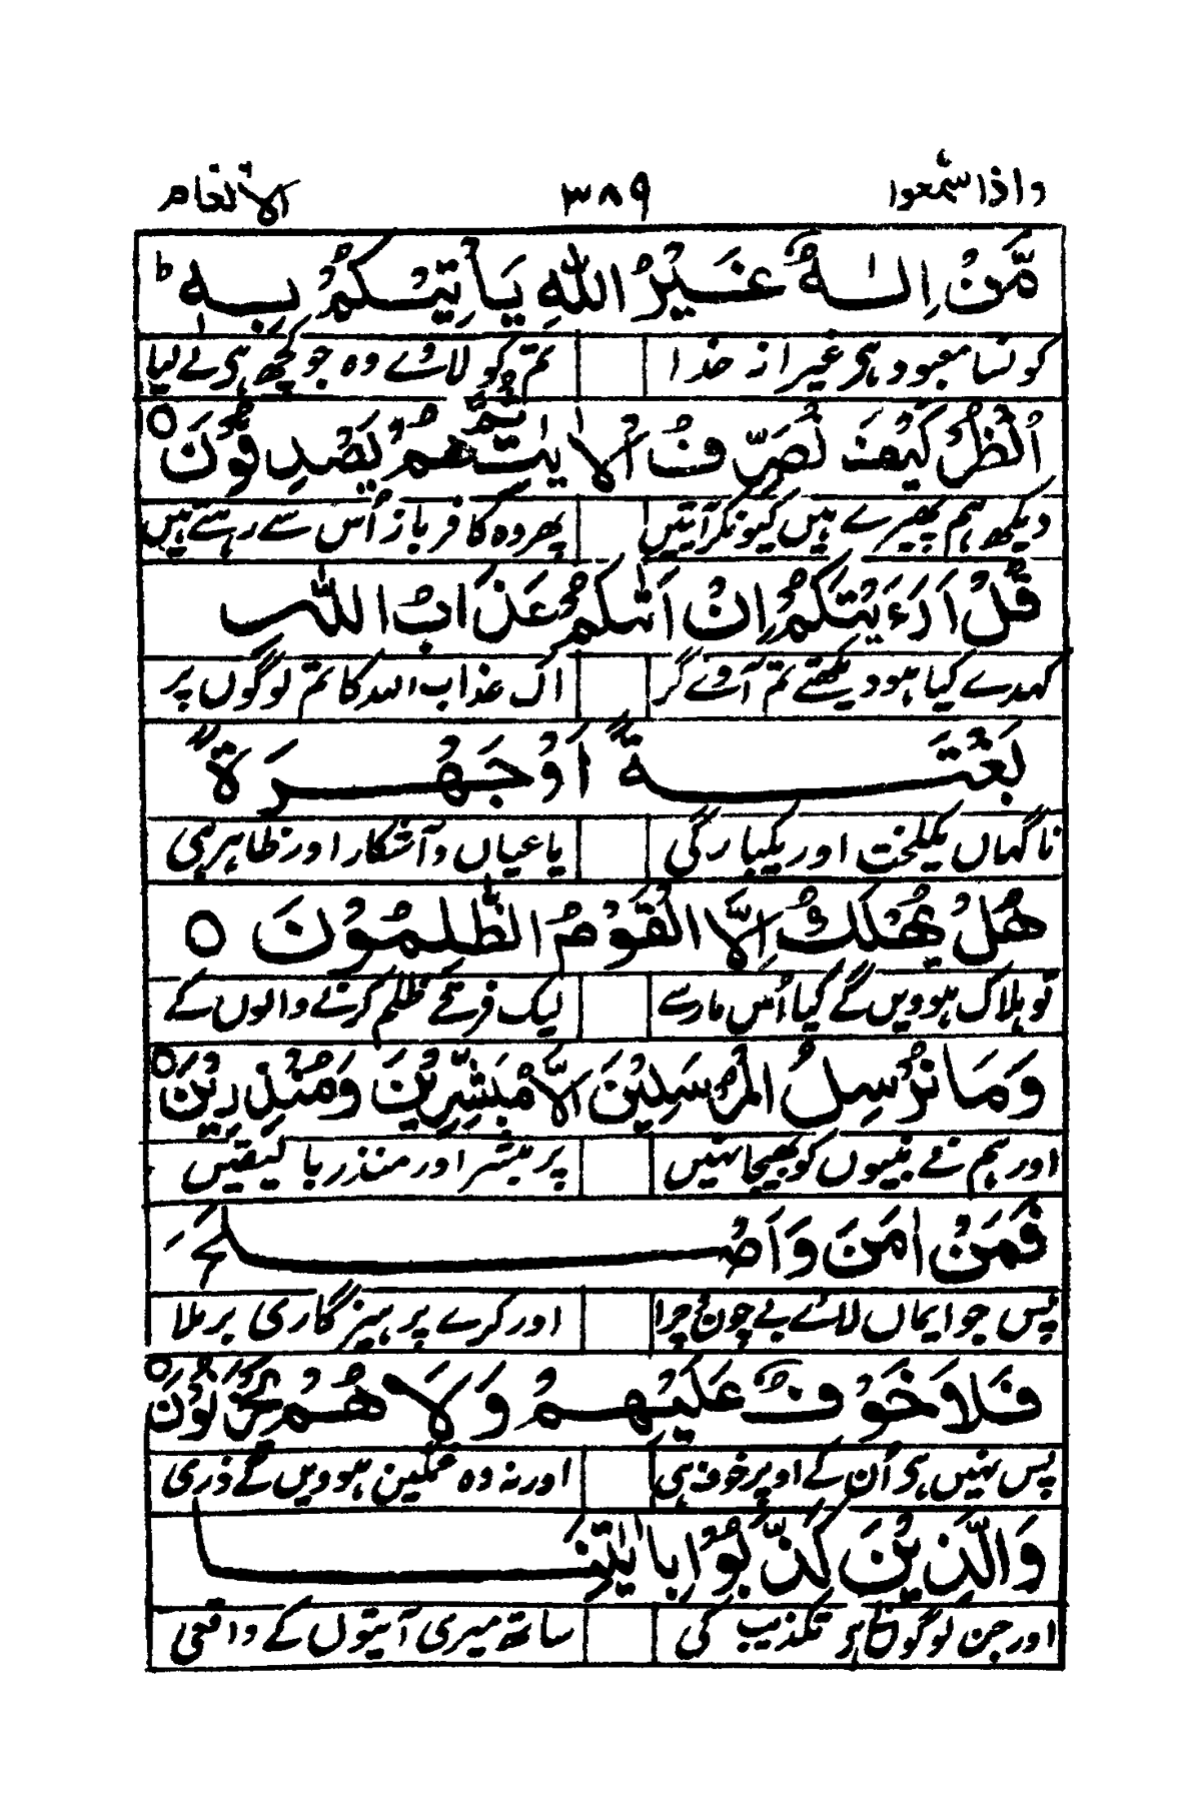 واذا سمعوا ۳۸۹ الانعام
مَّنْ اِلٰهٌ غَيْرُ اللّٰهِ يَاْتِيْكُمْ بِهٖ ط
کونسا معبود ہی غیر از خدا تم کو لائے وہ جو کچھ ہی لے لیا
اُنْظُرْ كَيْفَ نُصَرِّفُ الْاٰيٰتِ ثُمَّ هُمْ يَصْدِفُوْنَ ۝
دیکھ ہم پھیرے ہیں کیونکر آیتیں پھر وہ کافر باز اُس سے رہتے ہیں
قُلْ اَرَءَيْتَكُمْ اِنْ اَتٰىكُمْ عَذَابُ اللّٰهِ
کہدے کیا ہو دیکھتے تم آوے گر اک عذاب اللہ کا تم لوگوں پر
بَغْتَةً اَوْ جَهْرَةً
ناگہاں یکلخت اور یکبارگی یا عیاں و آشکارا ور ظاہر ہی
هَلْ يُهْلَكُ اِلَّا الْقَوْمُ الظّٰلِمُوْنَ ۝
تو ہلاک ہوویں گے کیا اُس مارے لیک فرقے ظلم کرنے والوں کے
وَمَا نُرْسِلُ الْمُرْسَلِيْنَ اِلَّا مُبَشِّرِيْنَ وَمُنْذِرِيْنَ ۝
اور ہم نے نبیوں کو بھیجا نہیں پر مبشر اور منذر با یقیں
فَمَنْ اٰمَنَ وَاَصْلَحَ
پس جو ایماں لائے بے چون و چرا اور کرے پرہیزگاری برملا
فَلَا خَوْفٌ عَلَيْهِمْ وَلَا هُمْ يَحْزَنُوْنَ ۝
پس نہیں ہی اُن کے اوپر خوف ہی اور نہ وہ غمگین ہوویں گے ذری
وَالَّذِيْنَ كَذَّبُوْا بِاٰيٰتِنَا
اور جن لوگوں تکذیب کی ساتھ میری آیتوں کے واقعی